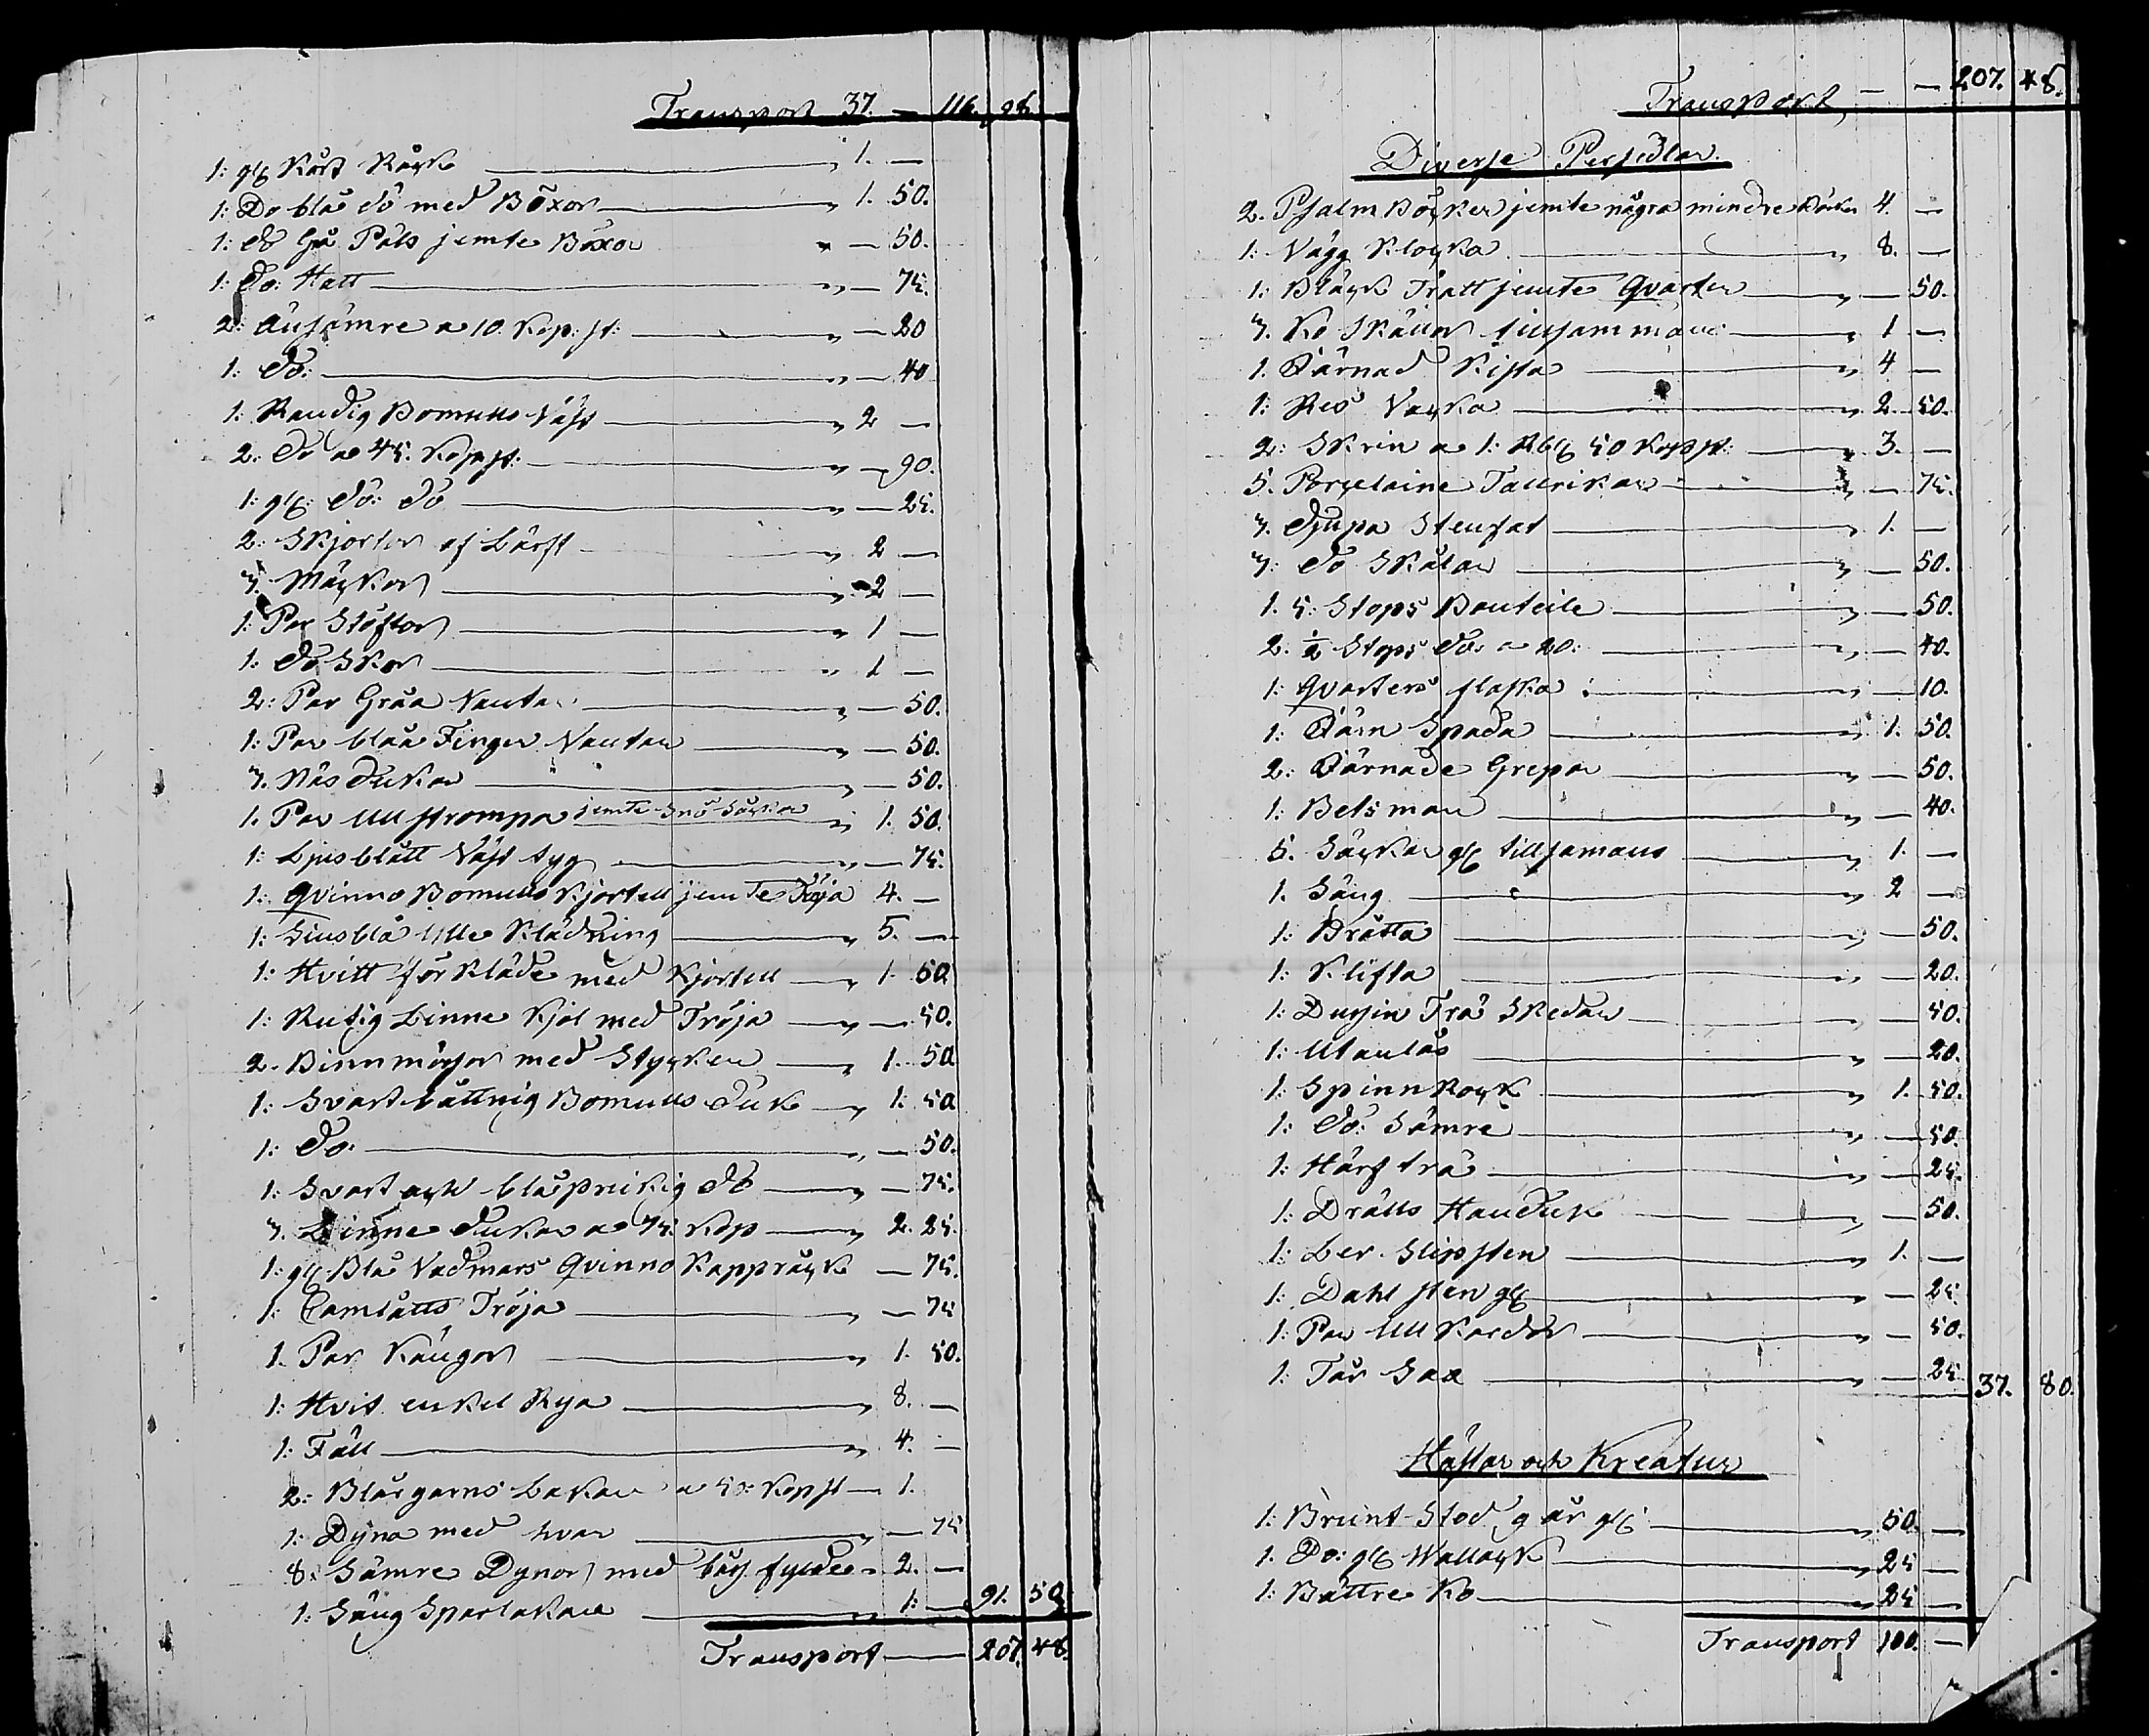 Transport 37. — 116. 98.
1: gl: Kort Råck — " 1. —
1: Do blå do med Böxor — " 1. 50.
1: do Grå Päls jemte Böxor " — 50.
1: do: Hatt — " — 75.
2: sämre a 10. Kop: st: — " — 20
1: do: — " — 40
1: Randig Bomulls Väst — " 2 —
2. do a 45. Kop st: — " — 90.
1: gl: do: do — " — 25.
2: Skjortor af Lärft — " 2 —
3. Mäckor — " 2 —
1: Par Stöflor — " 1 —
1: do Skor — " 1 —
2: Par Gråa Vantar — " — 50.
1: Par blåa Finger Vantar — " — 50.
3. Näs dukar — " — 50.
1. Par Ull strompor jemte Snö Såckor " 1. 50.
1: Ljusblått Väst tyg — " — 75.
1: Qvinno Bomulls Kjortell jemte Tröja 4. —
1: Liusblå Ylle Klädning — " 5. —
1: Hvitt förkläde med Kjortell — " 1. 50
1: Rutig Linne Kjol med Tröja — " — 50.
2. Binnmössor med Stycken — " 1. 50
1: Svartbåttnig Bomulls duk — " 1: 50
1: do: — " — 50.
1: Svart och blåsprickig do — " — 75.
3. Linne dukar a 75. Kop — " 2. 25.
1: gl: Blå Vadmars Qvinno Kappråck — 75.
1: Camlåtts Tröja — " — 75
1. Par Kängor — " 1. 50.
1: Hvit enkel Rya — " 8. —
1: Fäll — " 4. —
2: Blårgarns Lakan a 50: Kop st — 1.
1: Dyna med hvar — " — 75
8: Sämre Dynor med fyllde " 2. —
1: Säng Sparlakan — " 1: — 91. 50
Transport — 207. 48.
Transport, — — 207. 48.
Diverse Persedlar.
2. Psalm Böcker jemte några mindre Böcker 4. —
1: Vägg Klocka — " 8. —
1: Bläck Tratt jemte Qvarter — " — 50.
3. Ko Skällor tillsammans — " 1 —
1. Järnad Kista — " 4 —
1: Res Väcka — " 2. 50.
2: Skrin a 1: Rbl 50 Kop st: — " 3. —
5. Porcelaine Tallrikar — " — 75.
3. djupa Stenfat — " 1. —
3: do Skålar — " — 50.
1. 5: Stops Bouteile — " — 50.
2. ½ Stops do: a 20: — " — 40.
1: Qvarters flaska: — " — 10.
1: Järn Spada — " 1. 50.
2: Järnade Grepar — " — 50.
1: Betsman — " — 40.
5. Säckar gl tillsamans — " 1. —
1. Säng — " 2 —
1: Bråtta — " — 50.
1: Klifta — " — 20.
1: Dussin Trä Skedar — " — 50.
1: Utanlås — " — 20.
1: Spinn Rock — " 1. 50.
1: do: Sämre — " — 50.
1: Härf trä — " — 25.
1: Drälls Handuk — " — 50.
1: Ler Slipsten — " 1. —
1: Dahl sten gl — " — 25.
1: Par Ull Kardor — " — 50.
1: Får Sax — " — 25 37. 80.
Hästar och Kreatur
1: Brunt Stod 9 år gl: — " 50. —
1. Do: gl Wallack — " 25 —
1: Bättre Ko — " 25 —
Transport 100. —